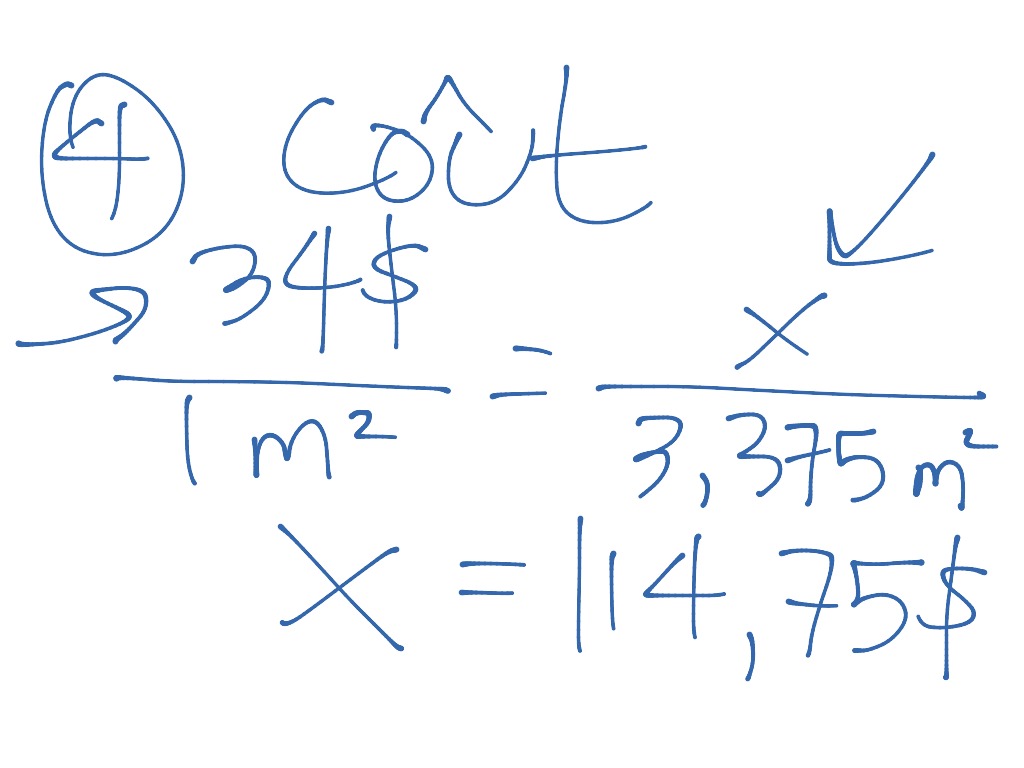 4 Coût
34$ / 1 m² = x / 3,375 m²
x = 114,75$